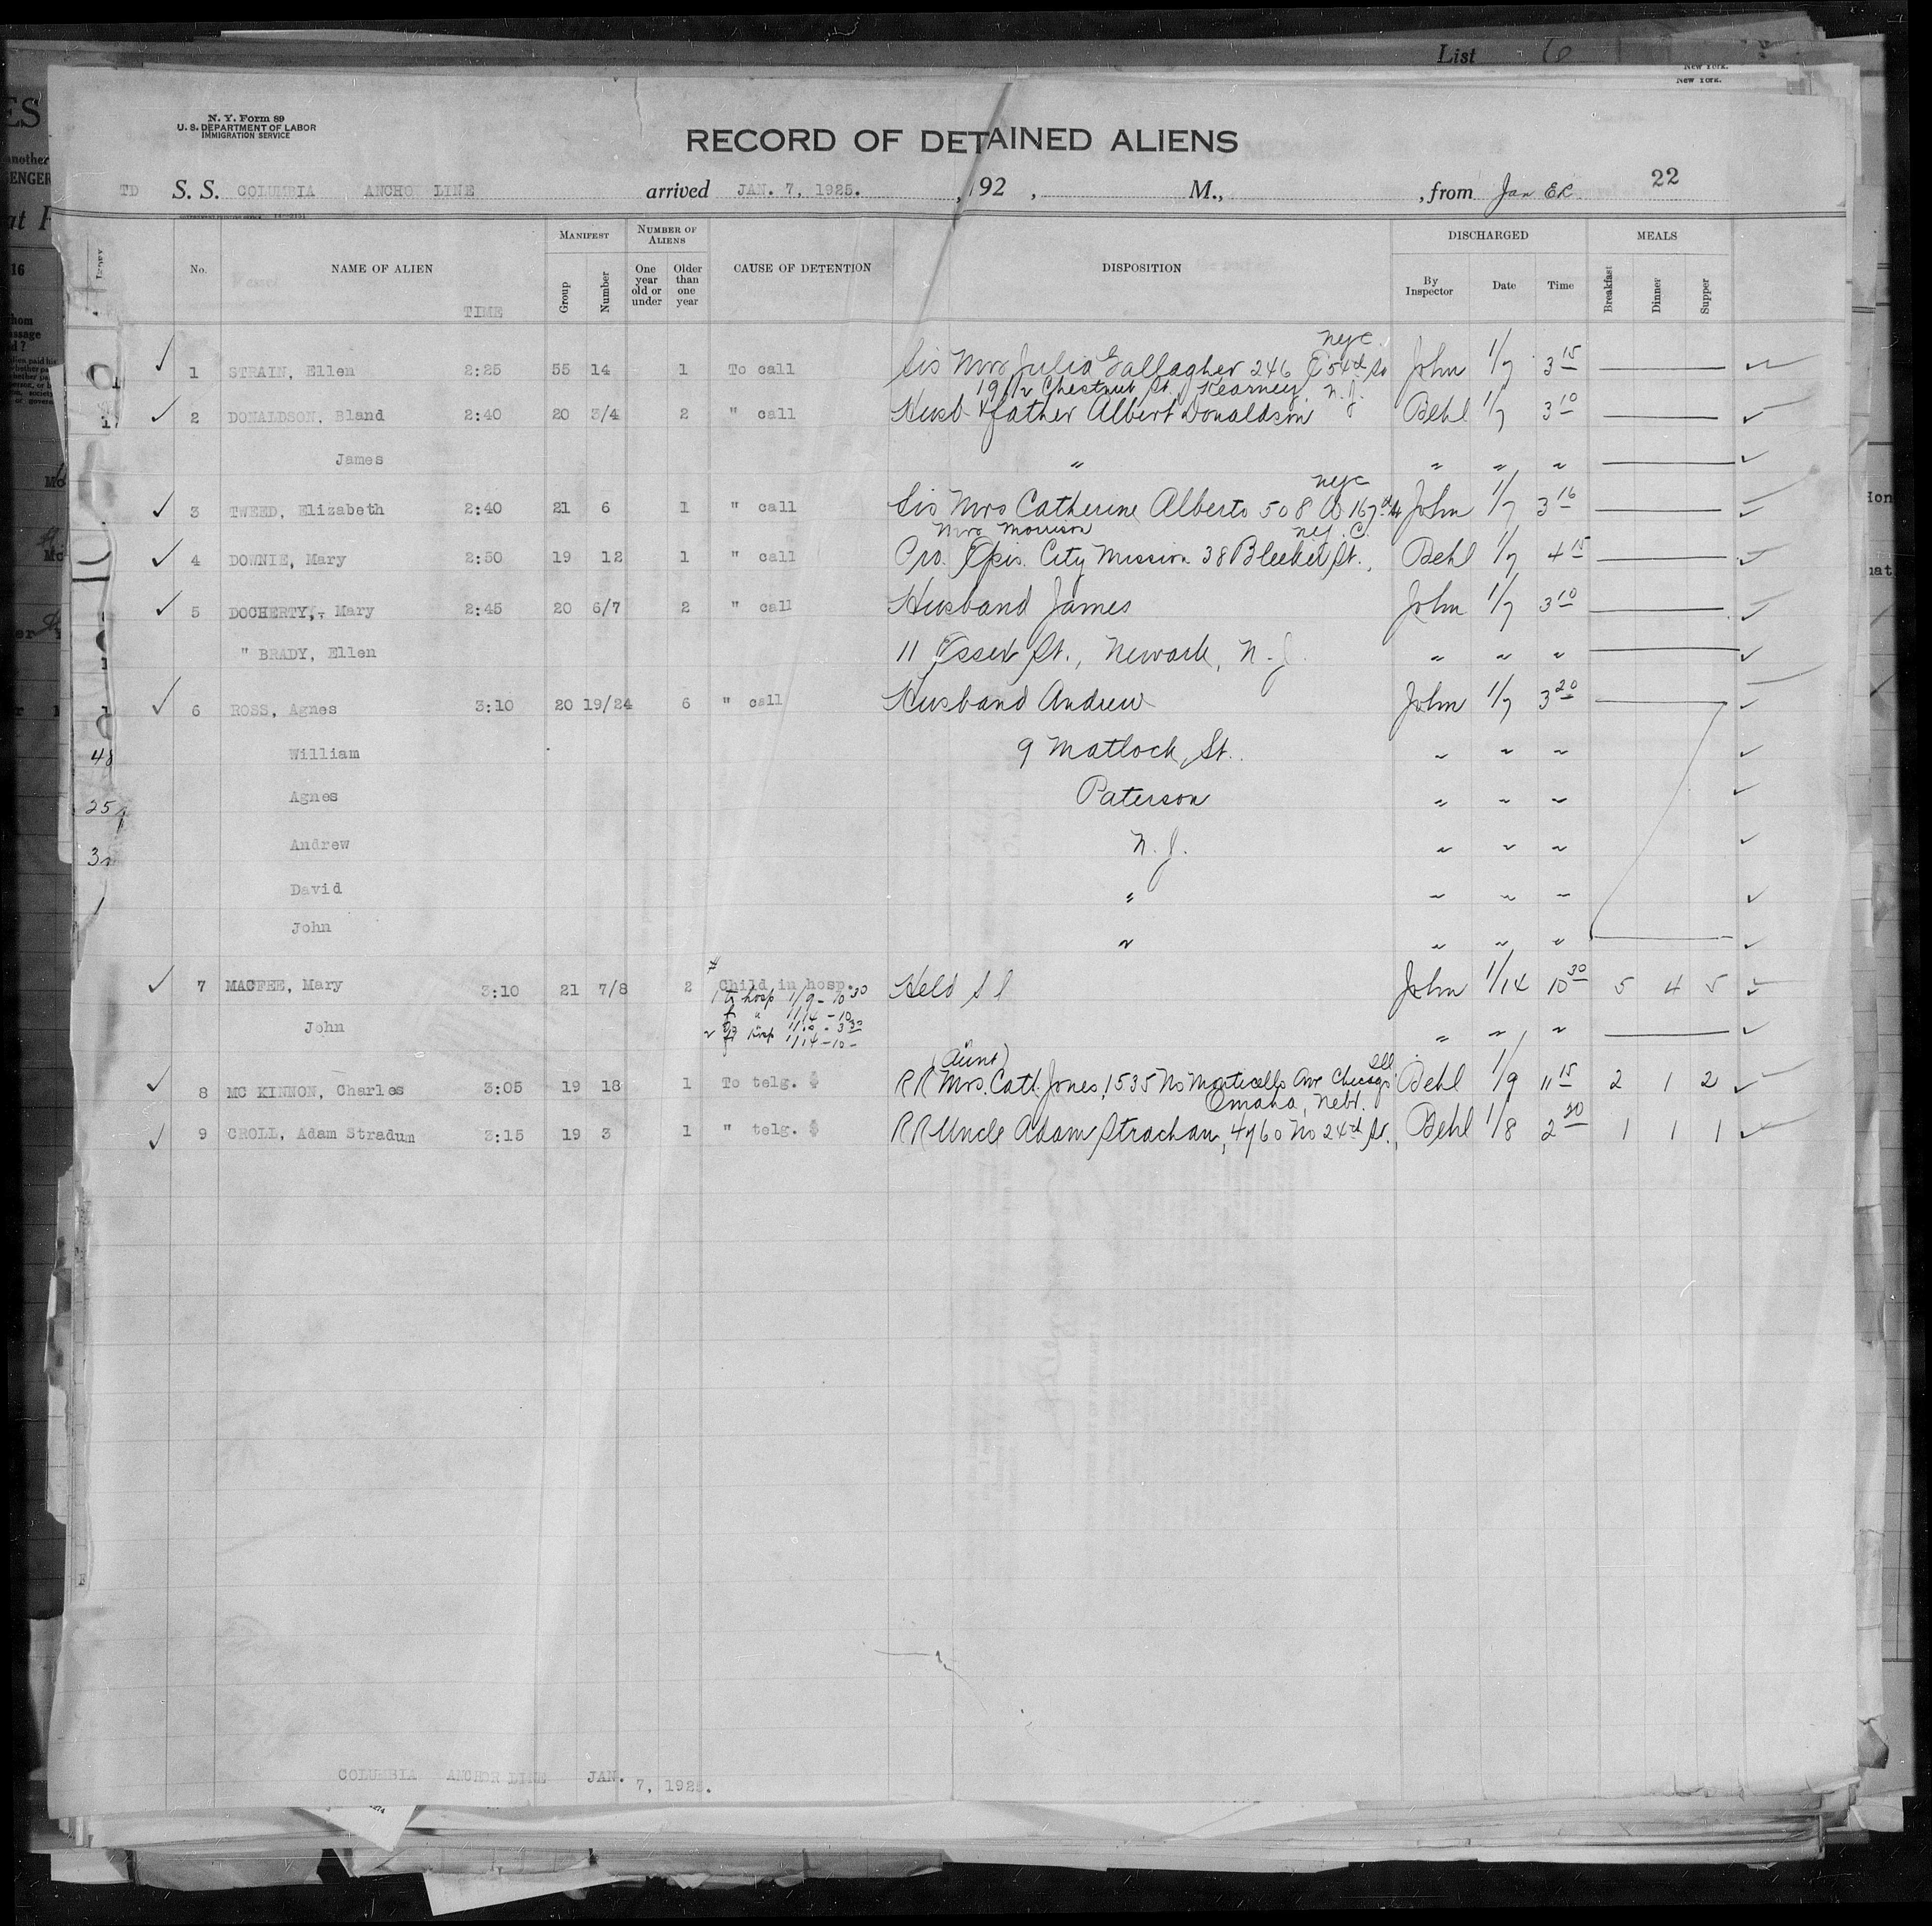 List 6
New York.
New York.
N. Y. Form 89
U. S. DEPARTMENT OF LABOR
IMMIGRATION SERVICE
RECORD OF DETAINED ALIENS
22
TD S. S. COLUMBIA ANCHOR LINE arrived JAN. 7, 1925. , 192 , M., , from Jan
MANIFEST NUMBER OF ALIENS DISCHARGED MEALS
No. NAME OF ALIEN TIME Group Number One year old or under Older than one year CAUSE OF DETENTION DISPOSITION By Inspector Date Time Breakfast Dinner Supper
NYC
1 STRAIN, Ellen 2:25 55 14 1 To call Sis Mrs Julia Gallagher 246 E 54th St John 1/7 3 15
Chestnut St., Kearney, N. J.
2 DONALDSON, Bland 2:40 20 3/4 2 " call Husb & father Albert Donaldson Behl 1/7 3 10
James " " " "
NYC
3 TWEED, Elizabeth 2:40 21 6 1 " call Sis Mrs Catherine Alberts 508 W 167th St John 1/7 3 16
Mrs Morrison N.Y.C.
4 DOWNIE, Mary 2:50 19 12 1 " call Pro. Epis. City Mission 38 Bleeker St., Behl 1/7 4 15
5 DOCHERTY, Mary 2:45 20 6/7 2 " call Husband James John 1/7 3 10
" BRADY, Ellen 11 Essex St., Newark, N. J. " " "
6 ROSS, Agnes 3:10 20 19/24 6 " call Husband Andrew John 1/7 3 20
William 9 Matlock St. " " "
Agnes Paterson " " "
Andrew N. J. " " "
David " " " "
John " " " "
7 MACFEE, Mary 3:10 21 7/8 2 Child in hosp. Held S I John 1/14 10 30 5 4 5
1 to hosp 1/9 - 10 30
" 1/14 - 10
John " " "
hosp 1/14 - 10 -
(Aunt) Ill
8 MC KINNON, Charles 3:05 19 18 1 To telg. RR Mrs. Cath. Jones, 1535 No Monticello Ave Chicago Behl 1/9 11 15 2 1 2
Omaha, Nebr.
9 CROLL, Adam Stradum 3:15 19 3 1 " telg. RR Uncle Adam Strachan, 4760 No 24th St., Behl 1/8 2 20 1 1 1
48
25
COLUMBIA ANCHOR LINE JAN. 7, 1925.